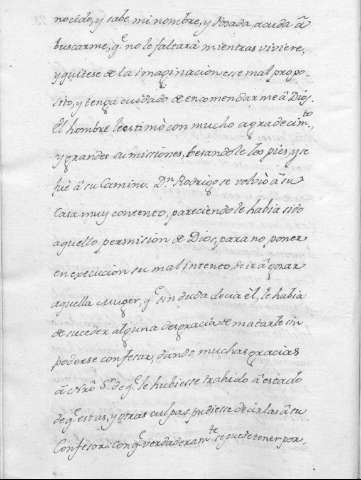 nocido, y sabe mi nombre, y Posada acuda â
buscarme, q̃ no le faltarà mientras viviere,
y quitese de la imaginacion ese mal propo-
sito, y tenga cuidado de encomendarme â Dios.
El hombre le estimò con mucho agradecim.to
y grandes sumissiones, besandole los pies, y se
fuè â su Camino. Dn. Rodrigo se volviò â su
Casa muy contento, pareciendole había sido
aquello permision de Dios, para no poner
en execucion su mal intento, de ir â gozar
aquella Muger, q̃ sin duda decia èl, le había
de suceder alguna desgracia, de matarle sin
poderse confesar, dando muchas gracias
â Nrô Sr. de q̃ le hubiese trahido â estado
de q̃ estas, y otras culpas pudiese decirlas â su
Confesor. Con q̃ verdaderam.te se puede tener por